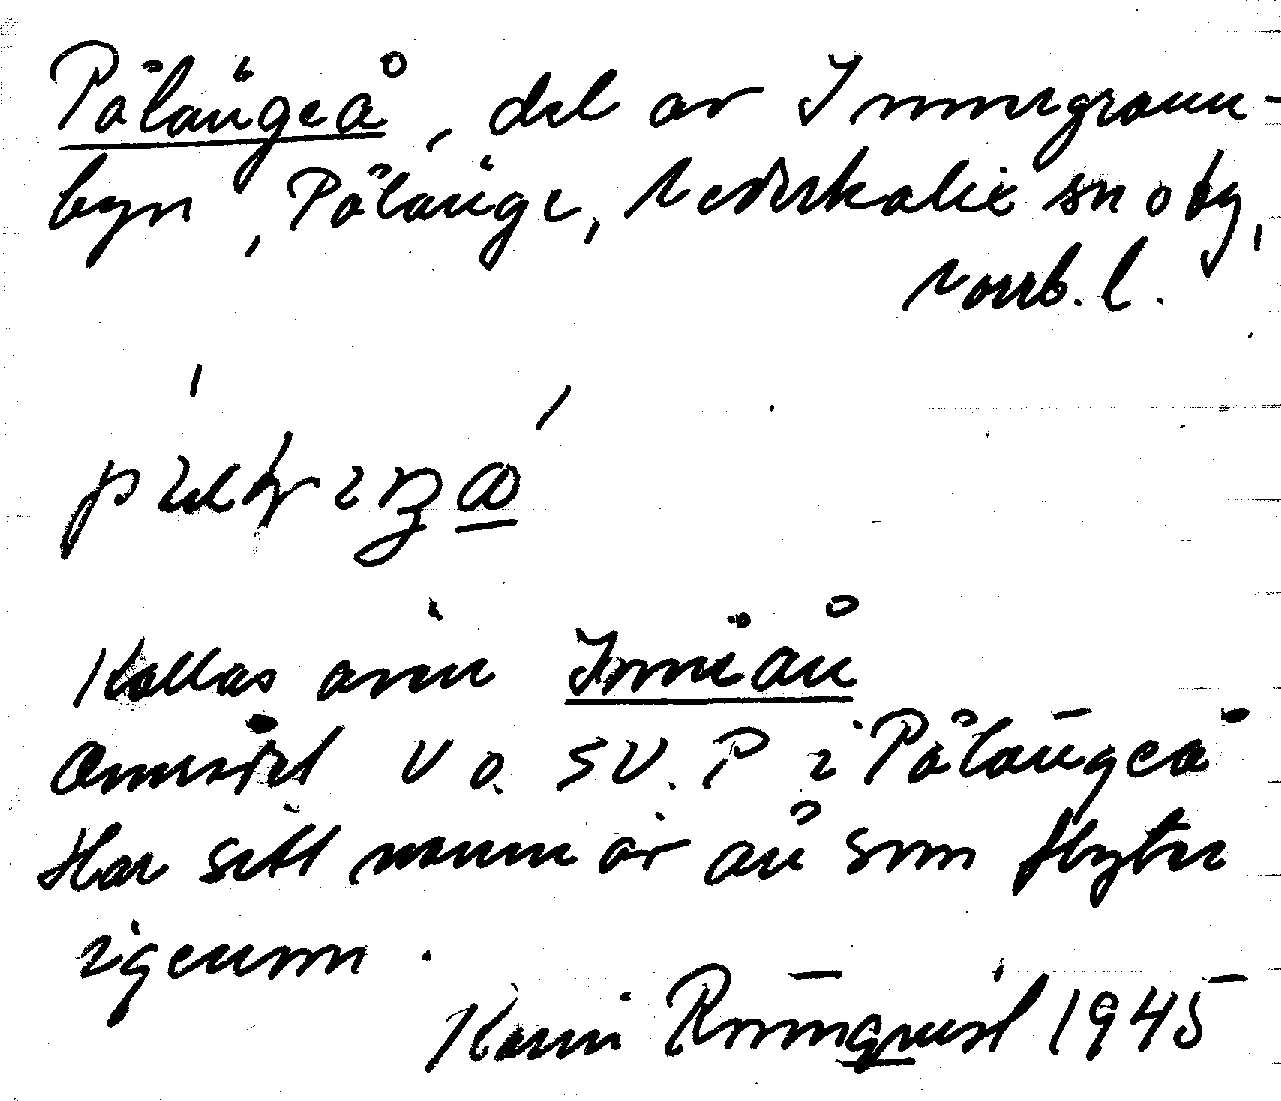 Pålängeå, del av Innergrann-
byn, Pålänge, Nederkalix sn o tg,
Norrb. l.
Kallas även Inniån
Området V o. SV. P i Pålängeå
Har sitt namn av ån som flyter
igenom.
Karin Rönnqvist 1945